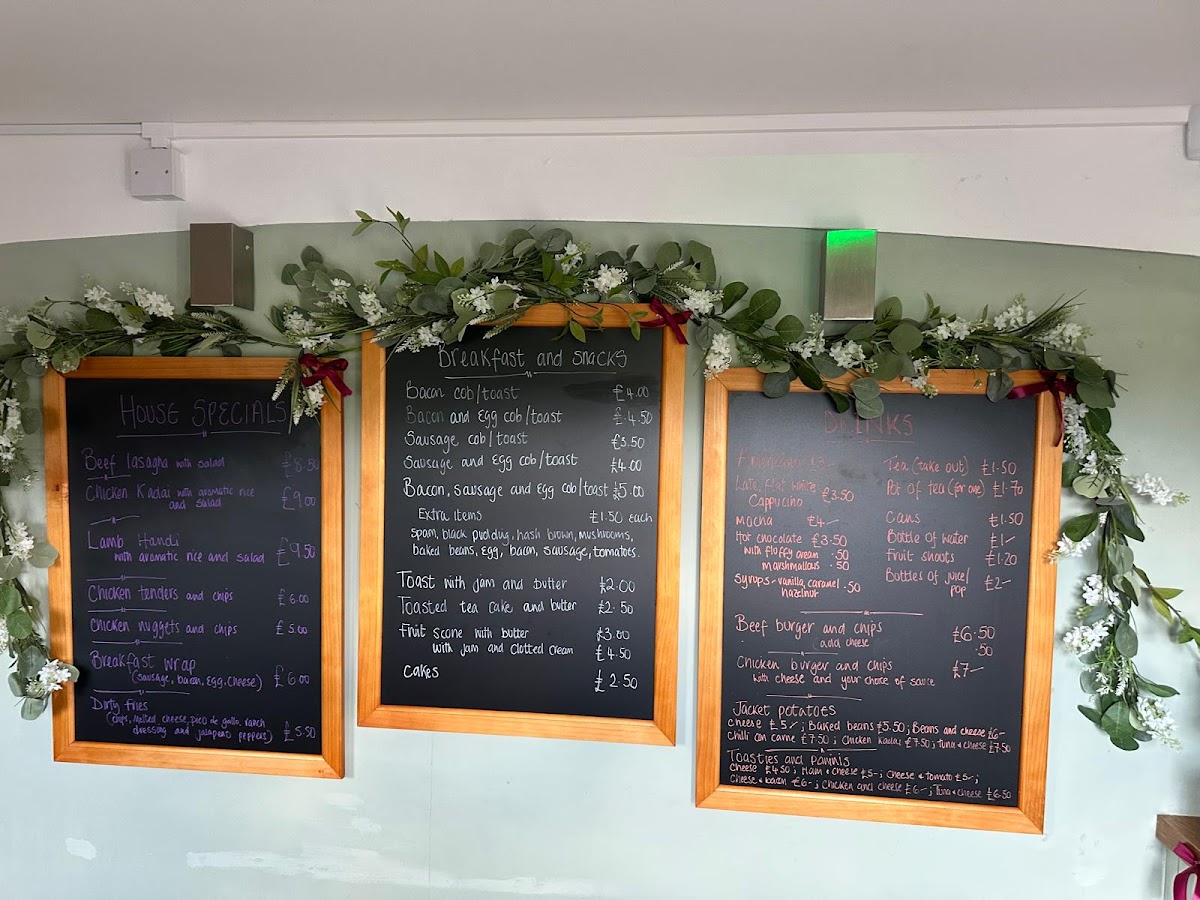 HOUSE SPECIALS
Beef lasagna with salad £8.50
Chicken Kadai with aromatic rice and salad £9.00
Lamb Handi
with aromatic rice and salad £9.50
Chicken tenders and chips £6.00
Chicken nuggets and chips £5.00
Breakfast wrap
(sausage, bacon, egg, cheese) £6.00
Dirty fries
(chips, melted cheese, pico de gallo, ranch
dressing and jalapeno peppers) £5.50
Breakfast and snacks
Bacon cob/toast £4.00
Bacon and Egg cob/toast £4.50
Sausage cob/toast £3.50
Sausage and Egg cob/toast £4.00
Bacon, sausage and Egg cob/toast £5.00
Extra items £1.50 each
spam, black pudding, hash brown, mushrooms,
baked beans, egg, bacon, sausage, tomatoes.
Toast with jam and butter £2.00
Toasted tea cake and butter £2.50
Fruit scone with butter £3.00
with jam and clotted cream £4.50
Cakes £2.50
DRINKS
Late, flat white
Cappucino £3.50
Mocha £4-
Hot chocolate £3.50
with fluffy cream .50
marshmallows .50
Syrups - vanilla, caramel .50
hazelnut
Tea (take out) £1.50
Pot of tea (for one) £1.70
Cans £1.50
Bottle of water £1-
Fruit shoots £1.20
Bottles of juice/
pop £2-
Beef burger and chips £6.50
(add cheese .50
Chicken burger and chips £7-
with cheese and your choice of sauce
Jacket potatoes
cheese £5-; Baked beans £5.50; Beans and cheese £6-
chilli con carne £7.50; Chicken Kadai £7.50; Tuna & cheese £7.50
Toasties and paninis
Cheese £4.50; Ham & cheese £5-; Cheese & tomato £5-;
Cheese & bacon £6-; Chicken and cheese £6-; Tuna & cheese £6.50